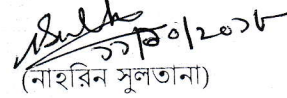 ১১/১০/২০১৮
(নাহরিন সুলতানা)